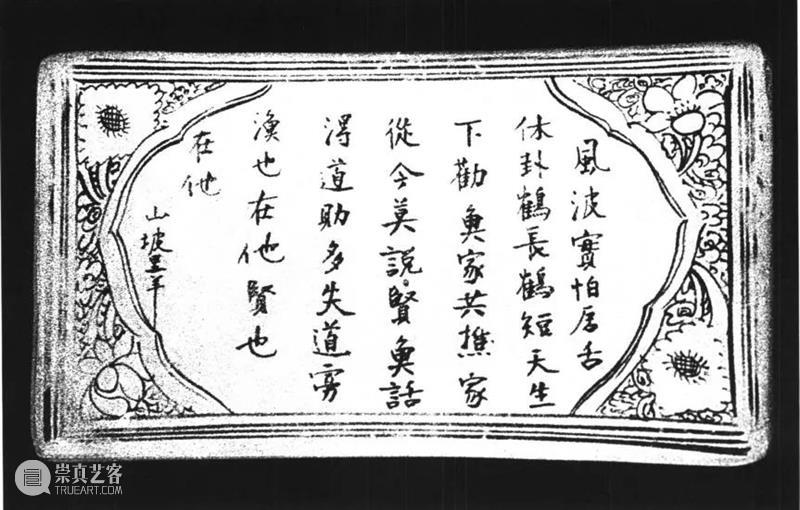 風波實怕唇舌
休卦鶴長鶴短天生
下勸魚家共樵家
從今莫說賢魚話
得道助多失道寡
漁也在他賢也
在他
山坡里羊
崇真艺客
TRUEART.COM